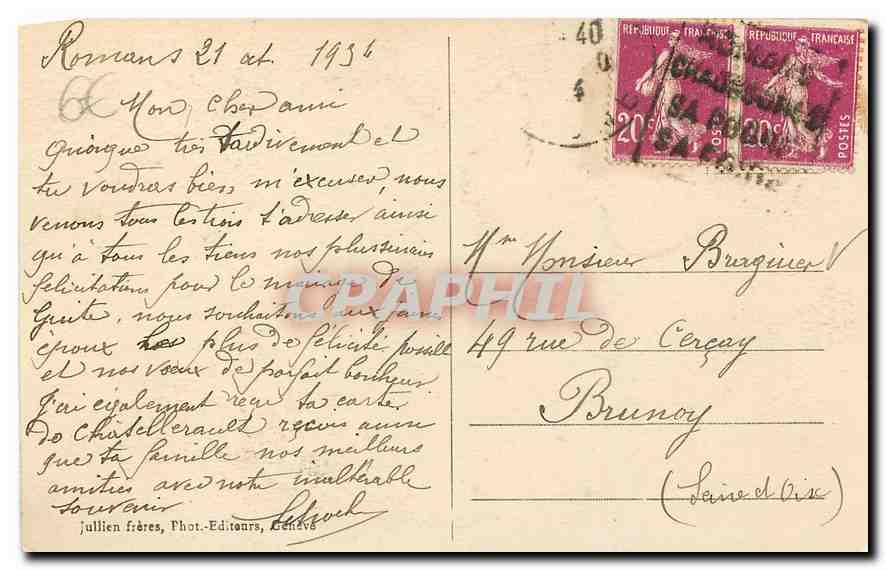 Romans 21 oct. 1934
6€
Mon cher ami
Quoique très tardivement et
tu voudras bien m'excuser, nous
venons tous les trois t'adresser ainsi
qu'à tous les tiens nos plus sincères
félicitations pour le mariage de
Guite, nous souhaitons aux jeunes
époux plus de félicité possible
et nos vœux de parfait bonheur
J'ai également reçu ta carte
de Châtellerault reçois ainsi
que ta famille nos meilleurs
amitiés avec notre inaltérable
souvenir
Jullien frères, Phot.-Editeurs, Genève
40
REPUBLIQUE FRANÇAISE
20c
POSTES
REPUBLIQUE FRANÇAISE
20c
POSTES
SA
SA
Monsieur
49 rue de Cerçay
Brunoy
(Seine et Oise)
CPAPHIL